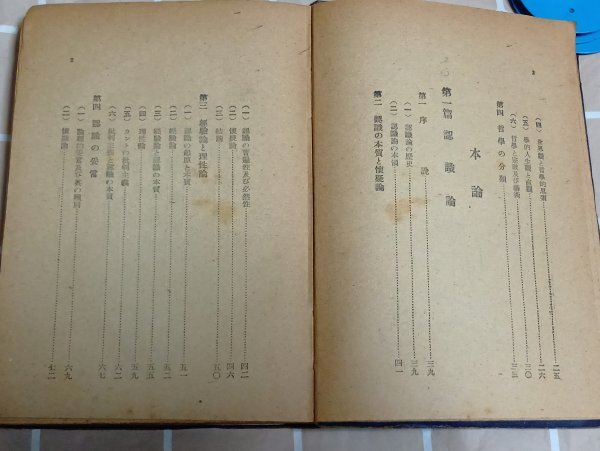 (四) 世界觀と哲學的思索 二五
(五) 學的人生觀と直觀 二六
(六) 哲學と宗敎及び藝術 三〇
第四 哲學の分類 三三
本論
第一篇 認識論
第一 序說 三九
(一) 認識論の歷史 三九
(二) 認識論の本領
第二 認識の本質と懷疑論 四一
(一) 認識の普遍性及び必然性 四二
(二) 懷疑論 四六
(三) 結論 五〇
第三 經驗論と理性論
(一) 認識の起原と本質 五一
(二) 經驗論 五二
(三) 經驗論と認識の本質 五五
(四) 理性論 五五
(五) カントの批判主義 五九
(六) 批判主義と認識の本質 六二
第四 認識の妥當 六七
(一) 論理的妥當及び其の種別 六九
(二) 懷疑論 七二